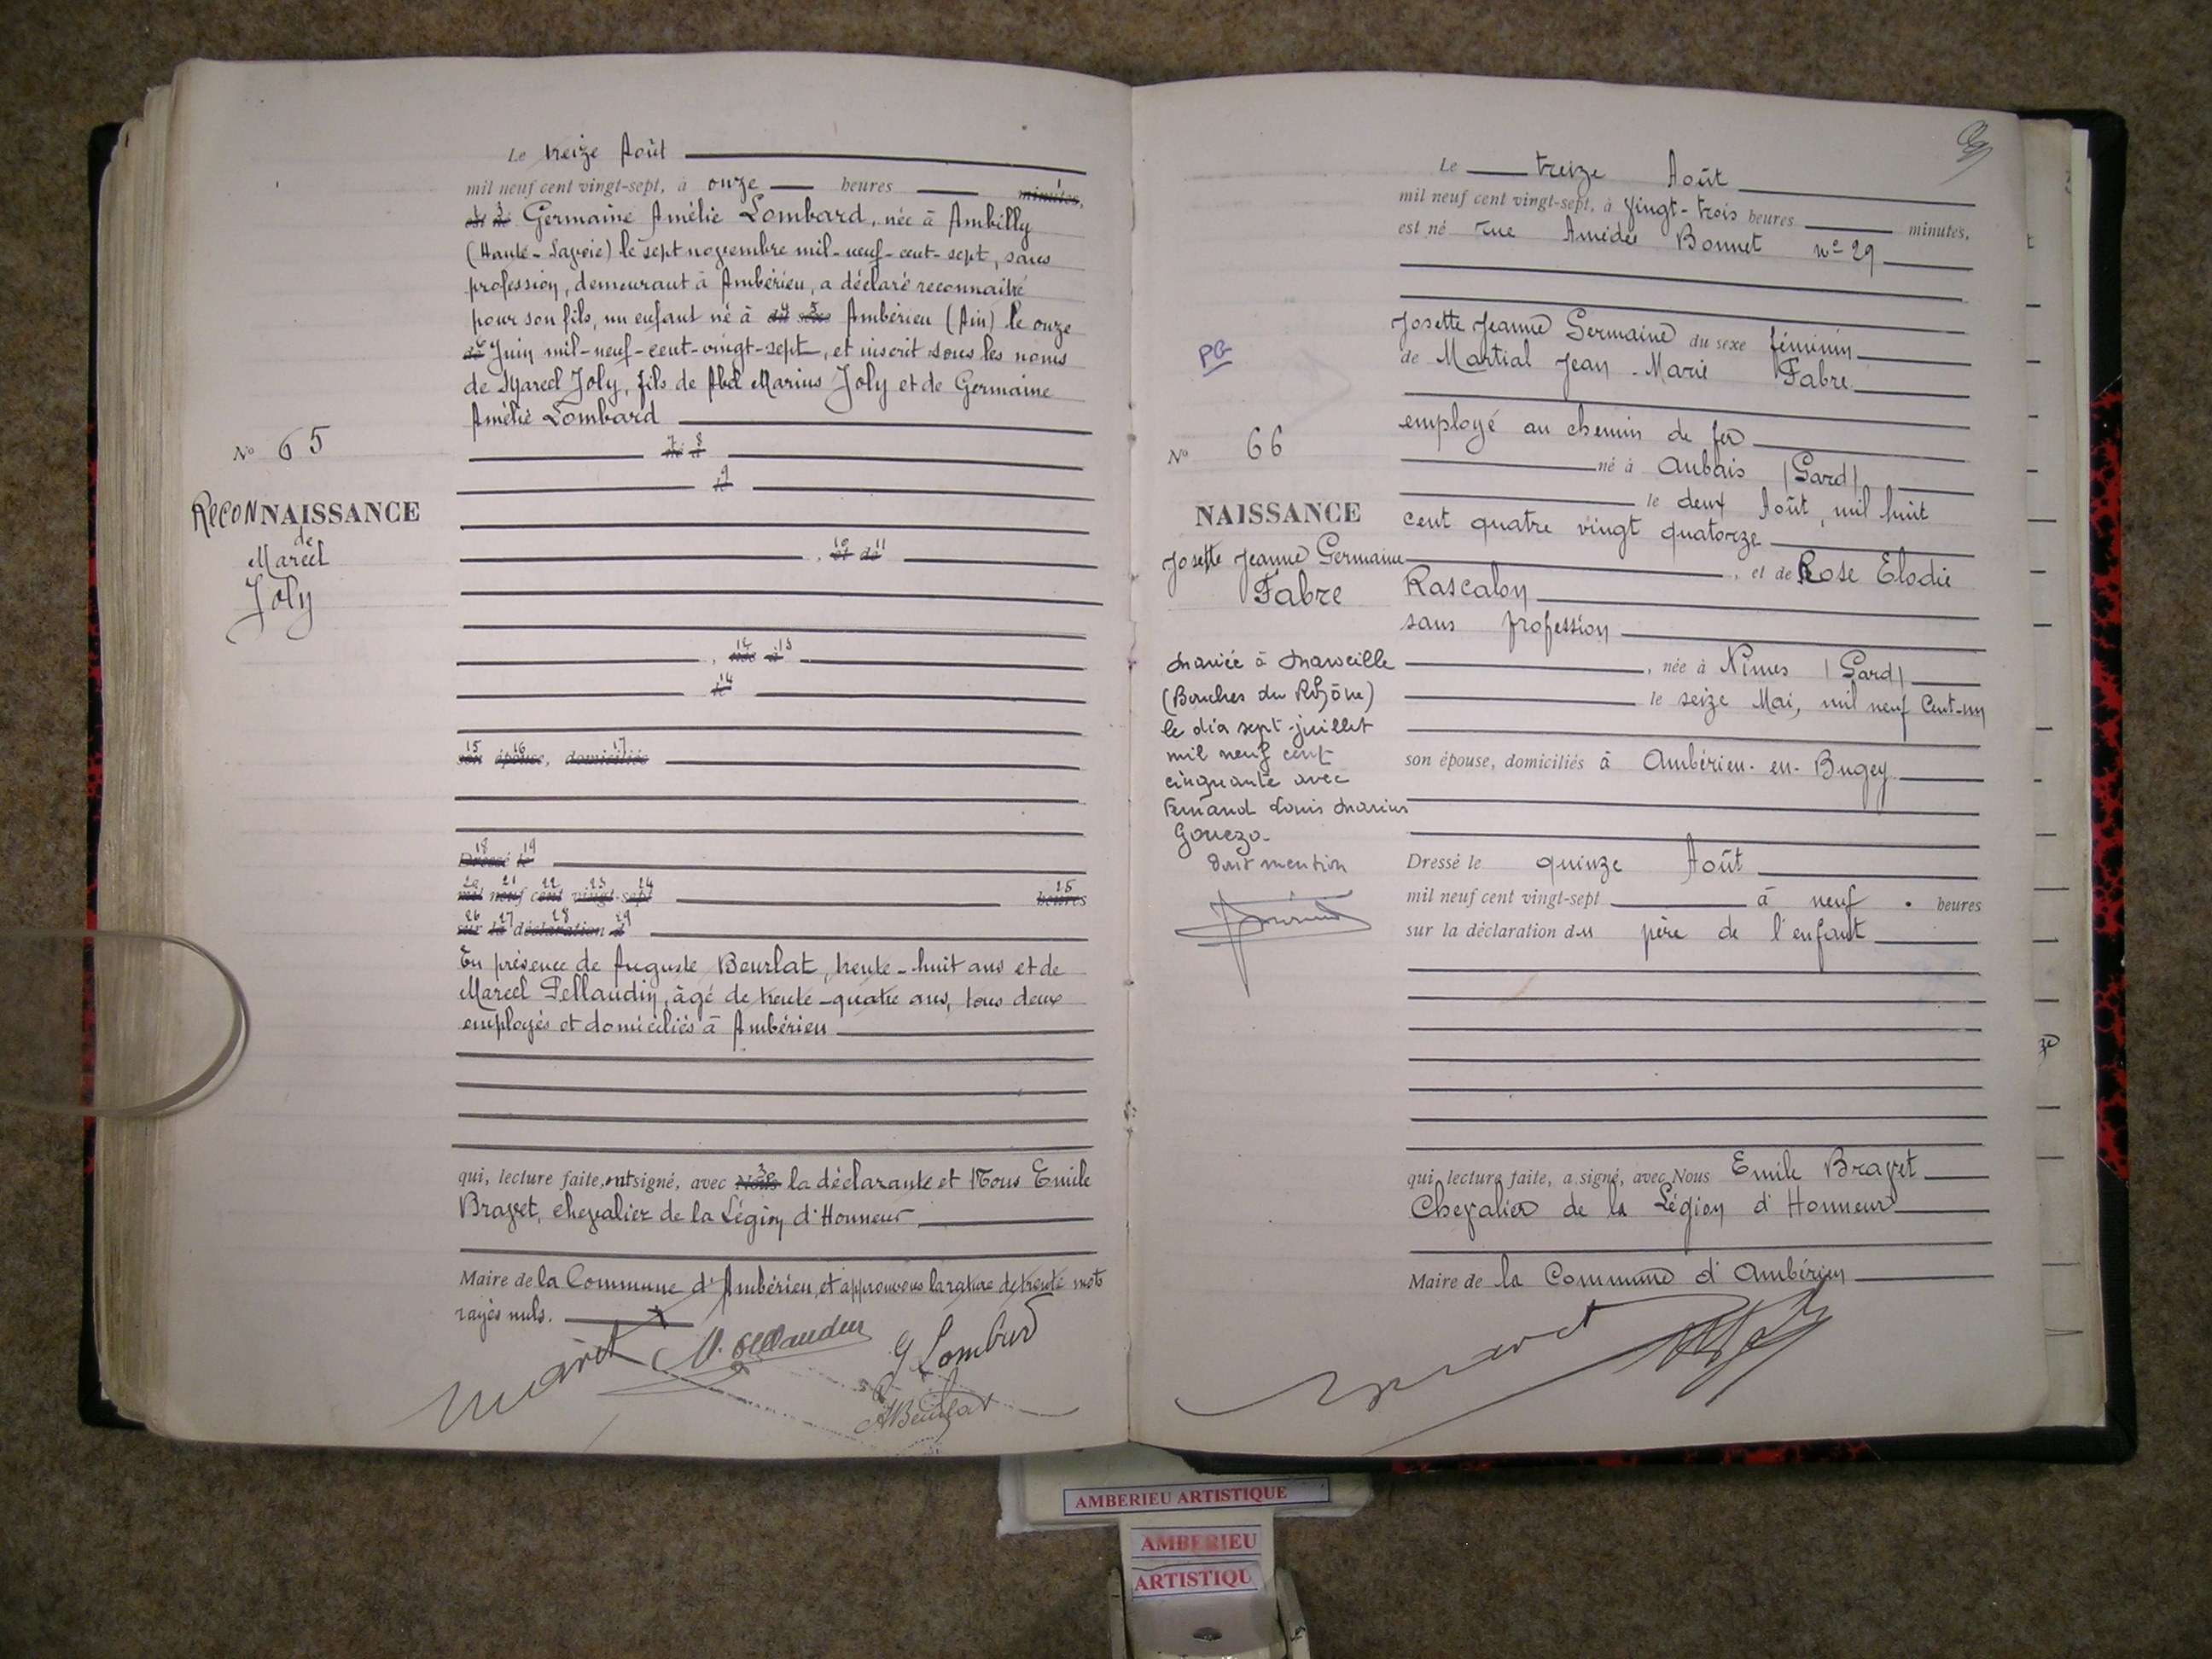 Le treize Août
mil neuf cent vingt-sept, à onze heures minutes,
est né Germaine Amélie Lombard, née à Ambilly
(Haute-Savoie) le sept novembre mil-neuf-cent-sept, sans
profession, demeurant à Ambérieu, a déclaré reconnaitre
pour son fils, un enfant né à du sexe Ambérieu (Ain) le onze
de Juin mil-neuf-cent-vingt-sept, et inscrit sous les noms
de Marcel Joly, fils de Abel Marius Joly et de Germaine
Amélie Lombard
7 8
né à
9
le
No 65
RECONNAISSANCE
de
Marcel
Joly
10 11
, et de
12 13
, née à
14
le
15 16 17
son épouse, domiciliés
18 19
Dressé le
20 21 22 23 24 25
mil neuf cent vingt-sept heures
26 27 28 29
sur la déclaration d
En présence de Auguste Beurlat, trente-huit ans et de
Marcel Pellaudin, âgé de trente-quatre ans, tous deux
employés et domiciliés à Ambérieu
qui, lecture faite, ont signé, avec Nous la déclarante et Nous Emile
Bravet, chevalier de la Légion d'Honneur
Maire de la Commune d'Ambérieu, et approuvons la rature de trente mots
rayés nuls.
G Lombard
ABeurlat
Le treize Août
mil neuf cent vingt-sept, à vingt-trois heures minutes,
est né rue Amédée Bonnet n° 29
Josette Jeanne Germaine du sexe féminin
de Martial Jean-Marie Fabre
employé au chemin de fer
né à Aubais (Gard)
le deux Août, mil huit
cent quatre vingt quatorze
, et de Rose Elodie
Rascalon
sans profession
, née à Nimes (Gard)
le seize Mai, mil neuf Cent-un
son épouse, domiciliés à Ambérieu-en-Bugey
Dressé le quinze Août
mil neuf cent vingt-sept à neuf heures
sur la déclaration du père de l'enfant
qui, lecture faite, a signé, avec Nous Emile Bravet
Chevalier de la Légion d'Honneur
Maire de la Commune d'Ambérieu
PG
No 66
NAISSANCE
Josette Jeanne Germaine
Fabre
Mariée à Marseille
(Bouches du Rhône)
le dix sept juillet
mil neuf cent
cinquante avec
Fernand Louis Marius
Gouezo.
Dont mention
AMBERIEU ARTISTIQUE
AMBERIEU
ARTISTIQU